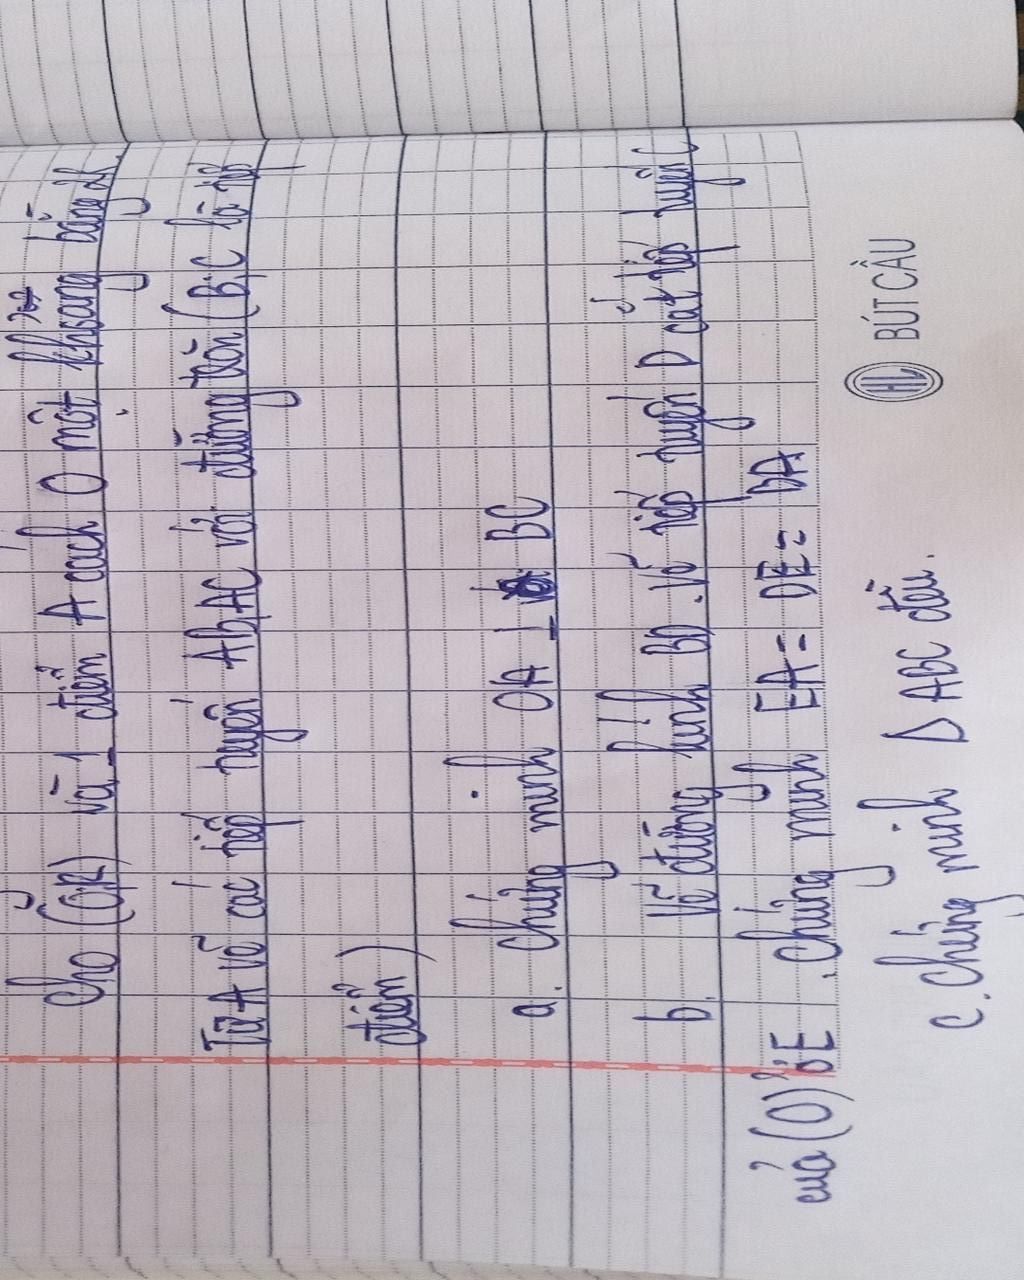 Cho (O;R) và 1 điểm A cách O một khoảng bằng 2R.
Từ A vẽ các tiếp tuyến AB, AC với đường tròn (B;C là tiếp
điểm)
a. Chứng minh OA ⊥ BC
b. Vẽ đường kính BD. Vẽ tiếp tuyến D cắt tiếp tuyến C
của (O) ở E. Chứng minh EA = DE = BA
c. Chứng minh Δ ABC đều.
HL BÚT CẦU